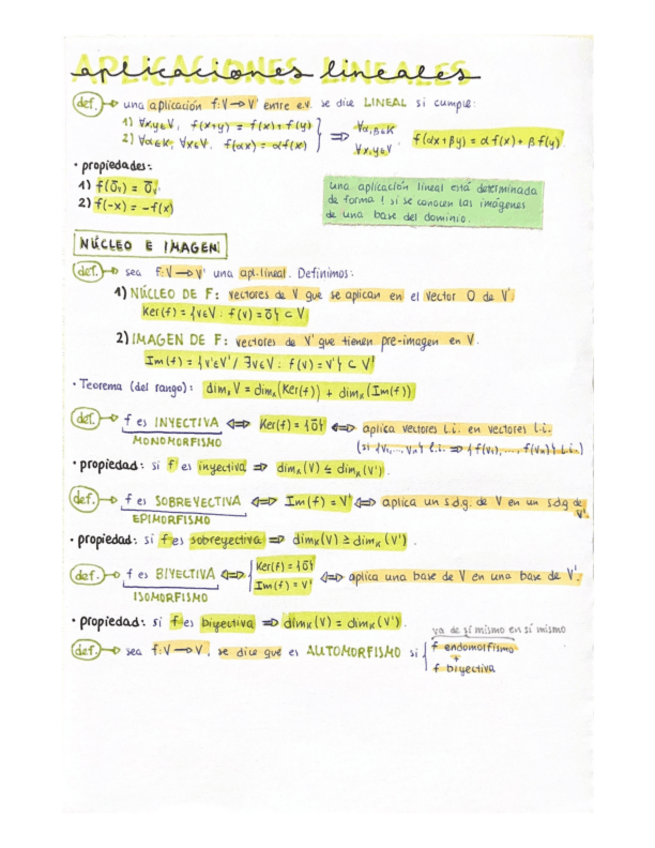 aplicaciones lineales
def. → una aplicación f:V→V' entre e.v. se dice LINEAL si cumple:
1) ∀x,y∈V, f(x+y) = f(x)+f(y)
2) ∀α∈K, ∀x∈V. f(αx) = αf(x)
⇒ ∀α,β∈K ∀x,y∈V f(αx+βy) = αf(x)+βf(y)
• propiedades:
1) f(0̄v) = 0̄v'
2) f(-x) = -f(x)
una aplicación lineal está determinada
de forma ! si se conocen las imágenes
de una base del dominio.
NÚCLEO E IMAGEN
def. → sea f:V→V' una apl.lineal. Definimos:
1) NÚCLEO DE F: vectores de V que se aplican en el vector 0 de V'.
Ker(f) = {v∈V : f(v) = 0̄} ⊂ V
2) IMAGEN DE F: vectores de V' que tienen pre-imagen en V.
Im(f) = {v'∈V' / ∃v∈V : f(v) = v'} ⊂ V'
• Teorema (del rango): dimₖV = dimₖ(Ker(f)) + dimₖ(Im(f))
def. → f es INYECTIVA ⇔ Ker(f) = {0̄} ⇔ aplica vectores l.i. en vectores l.i.
MONOMORFISMO (si {v₁,..., vₙ} l.i. ⇒ {f(v₁),..., f(vₙ)} l.i.)
• propiedad: si f es inyectiva ⇒ dimₖ(V) ≤ dimₖ(V').
def. → f es SOBREYECTIVA ⇔ Im(f) = V' ⇔ aplica un s.d.g. de V en un s.d.g de V'.
EPIMORFISMO
• propiedad: si f es sobreyectiva ⇒ dimₖ(V) ≥ dimₖ(V').
def. → f es BIYECTIVA ⇔ { Ker(f) = {0̄} Im(f) = V' ⇔ aplica una base de V en una base de V'.
ISOMORFISMO
• propiedad: si f es biyectiva ⇒ dimₖ(V) = dimₖ(V').
va de sí mismo en sí mismo
def. → sea f:V→V, se dice que es AUTOMORFISMO si { f endomorfismo
+
f biyectiva